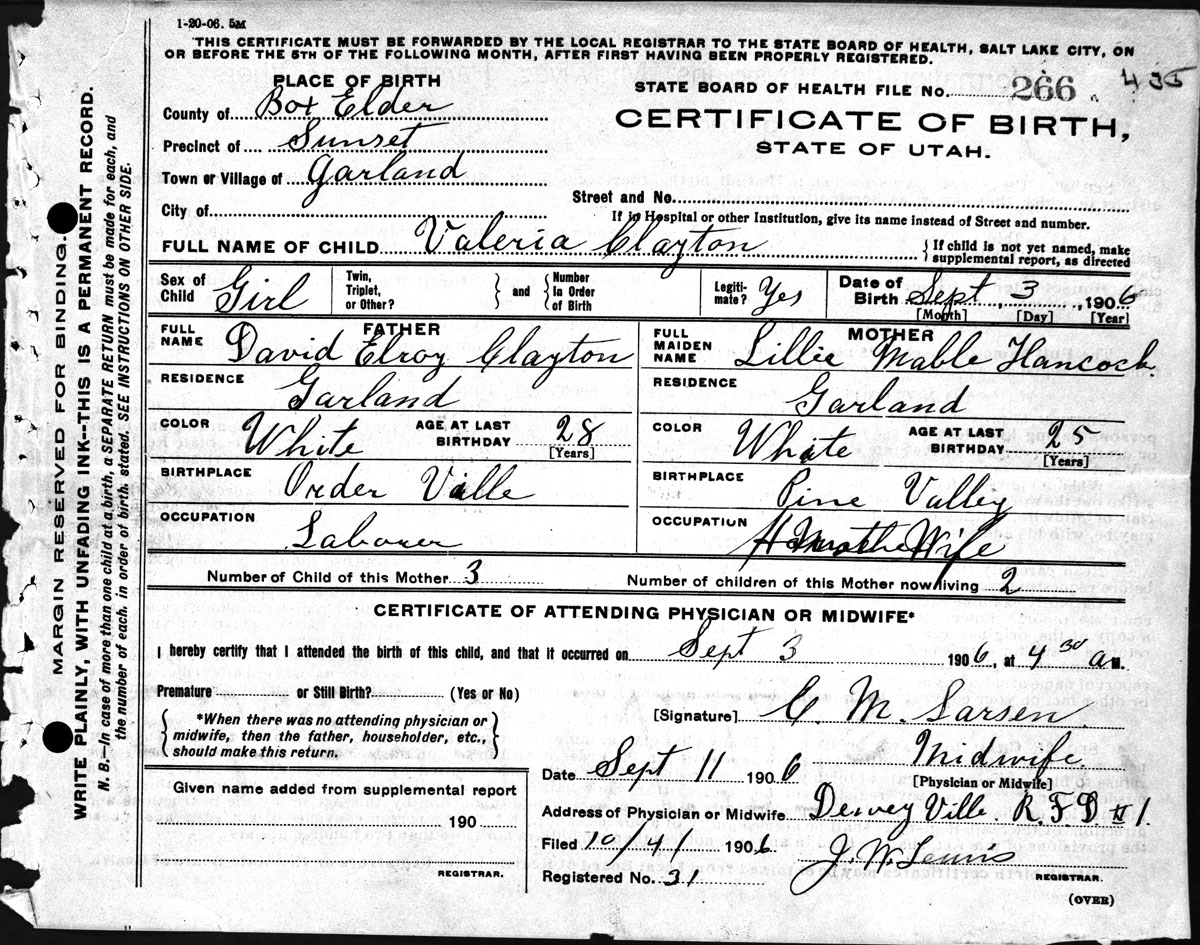 1-20-06. 5M
THIS CERTIFICATE MUST BE FORWARDED BY THE LOCAL REGISTRAR TO THE STATE BOARD OF HEALTH, SALT LAKE CITY, ON
OR BEFORE THE 5TH OF THE FOLLOWING MONTH, AFTER FIRST HAVING BEEN PROPERLY REGISTERED.
PLACE OF BIRTH
STATE BOARD OF HEALTH FILE No. 266. 435
County of Box Elder
CERTIFICATE OF BIRTH,
Precinct of Sunset
STATE OF UTAH.
Town or Village of Garland
Street and No.
City of
If in Hospital or other Institution, give its name instead of Street and number.
FULL NAME OF CHILD Valeria Clayton
If child is not yet named, make
supplemental report, as directed
Sex of Child Girl
Twin, Triplet, or Other? and Number In Order of Birth
Legitimate? Yes
Date of Birth Sept, 3, 1906
[Month] [Day] [Year]
FATHER
FULL NAME David Elroy Clayton
MOTHER
FULL MAIDEN NAME Lillie Mable Hancock.
RESIDENCE Garland
RESIDENCE Garland
COLOR White AGE AT LAST BIRTHDAY 28 [Years]
COLOR White AGE AT LAST BIRTHDAY 25 [Years]
BIRTHPLACE Order Ville
BIRTHPLACE Pine Valley
OCCUPATION Laborer
OCCUPATION Wife
Number of Child of this Mother 3
Number of children of this Mother now living 2
CERTIFICATE OF ATTENDING PHYSICIAN OR MIDWIFE*
I hereby certify that I attended the birth of this child, and that it occurred on Sept 3 1906, at 4 30 a M.
Premature or Still Birth? (Yes or No)
*When there was no attending physician or
midwife, then the father, householder, etc.,
should make this return.
[Signature] C. M. Larsen.
Midwife.
[Physician or Midwife]
Date Sept 11 1906
Given name added from supplemental report
190
REGISTRAR.
Address of Physician or Midwife Dewey Ville R. F. D. #1.
Filed 10/41 1906
J. W. Lewis
REGISTRAR.
Registered No. 31
(OVER)
MARGIN RESERVED FOR BINDING.
WRITE PLAINLY, WITH UNFADING INK--THIS IS A PERMANENT RECORD.
N. B.—In case of more than one child at a birth, a SEPARATE RETURN must be made for each, and
the number of each, in order of birth, stated. SEE INSTRUCTIONS ON OTHER SIDE.